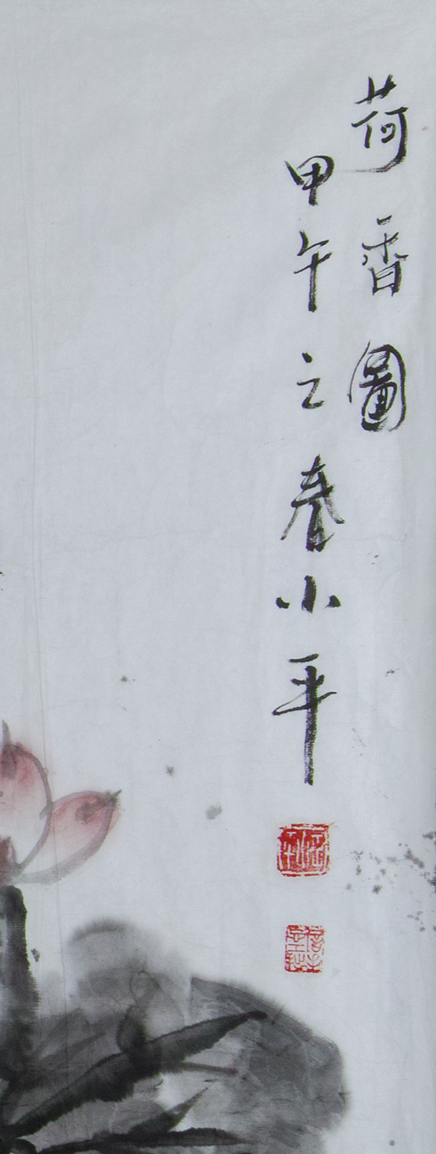 荷香圖
甲午之春小平